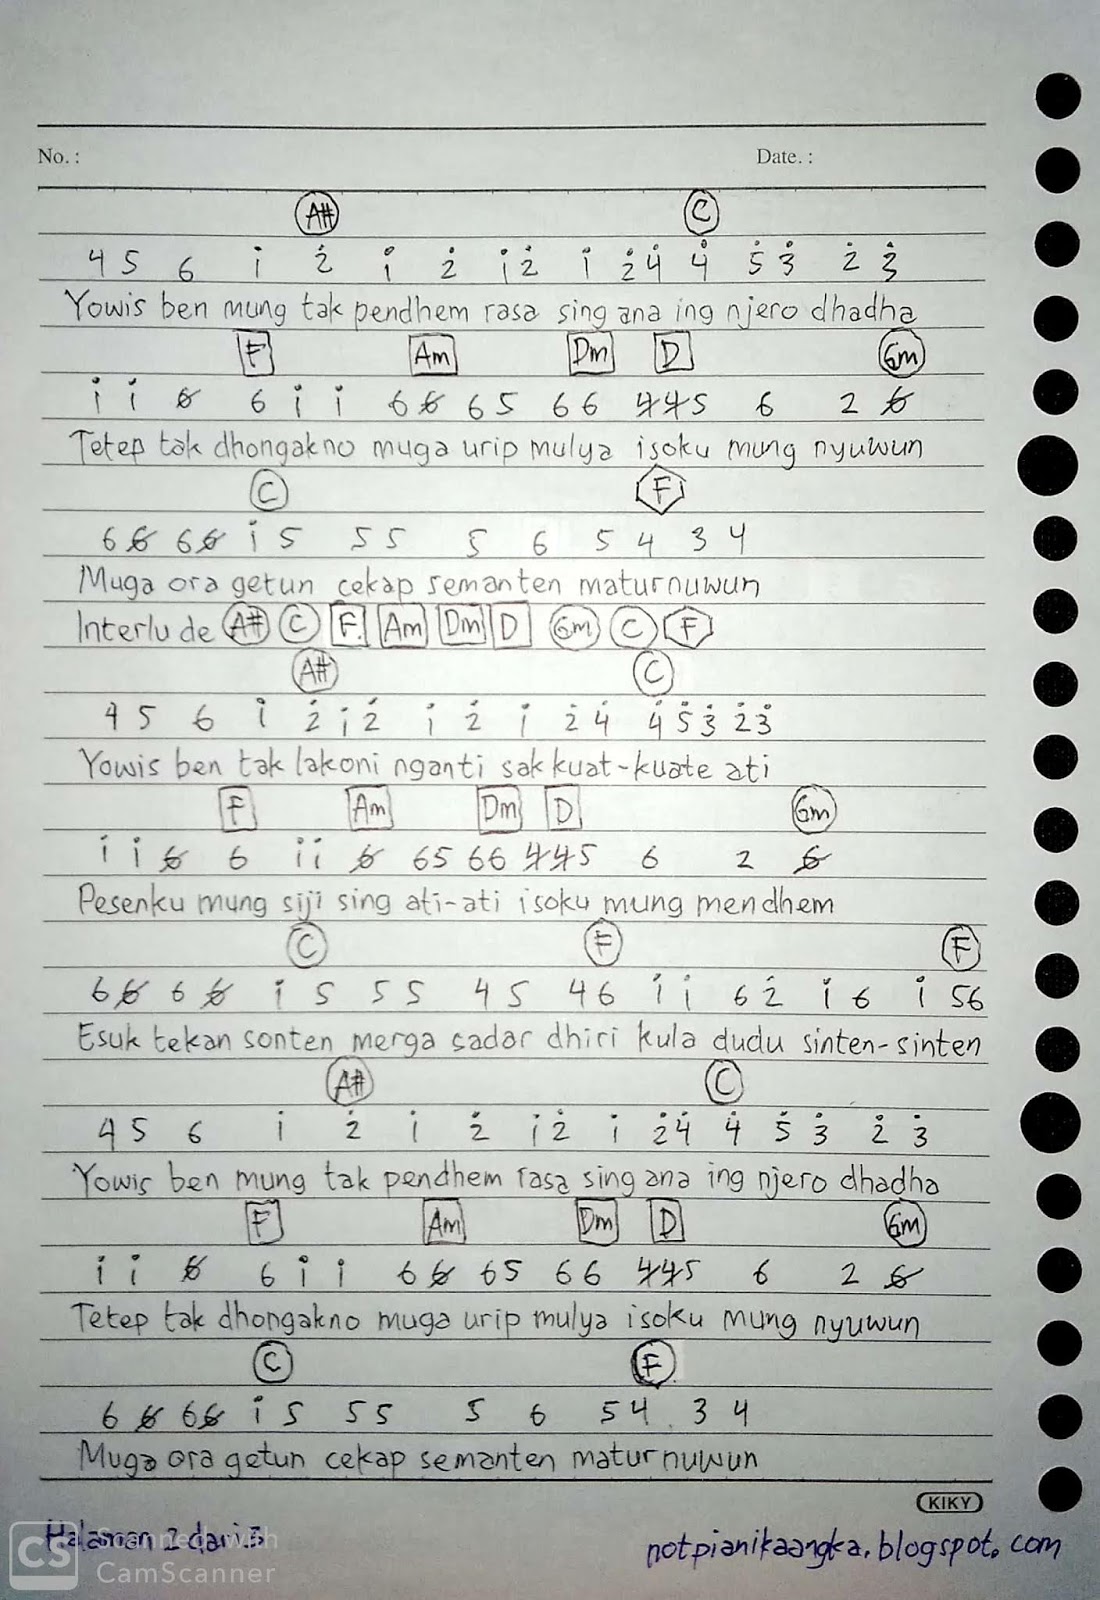 No. : Date. :
A# C
4 5 6 i 2̇ i 2̇ i 2̇ i 2̇ 4̇ 4̇ 5̇ 3̇ 2̇ 3̇
Yowis ben mung tak pendhem rasa sing ana ing njero dhadha
F Am Dm D Gm
i i 6̸ 6 i i 6 6̸ 6 5 6 6 4̸ 4̸ 5 6 2 6̸
Tetep tak dhongakno muga urip mulya isoku mung nyuwun
C F
6 6̸ 6 6̸ i 5 5 5 5 6 5 4 3 4
Muga ora getun cekap semanten maturnuwun
Interlude A# C F Am Dm D Gm C F
A# C
4 5 6 i 2̇ i 2̇ i 2̇ i 2̇ 4̇ 4̇ 5̇ 3̇ 2̇ 3̇
Yowis ben tak lakoni nganti sak kuat-kuate ati
F Am Dm D Gm
i i 6̸ 6 i i 6̸ 6 5 6 6 4̸ 4̸ 5 6 2 6̸
Pesenku mung siji sing ati-ati isoku mung mendhem
C F F
6 6̸ 6 6̸ i 5 5 5 4 5 4 6 i i 6 2̇ i 6 i 5 6
Esuk tekan sonten merga sadar dhiri kula dudu sinten-sinten
A# C
4 5 6 i 2̇ i 2̇ i 2̇ i 2̇ 4̇ 4̇ 5̇ 3̇ 2̇ 3̇
Yowis ben mung tak pendhem rasa sing ana ing njero dhadha
F Am Dm D Gm
i i 6̸ 6 i i 6 6̸ 6 5 6 6 4̸ 4̸ 5 6 2 6̸
Tetep tak dhongakno muga urip mulya isoku mung nyuwun
C F
6 6̸ 6 6̸ i 5 5 5 5 6 5 4 3 4
Muga ora getun cekap semanten maturnuwun
KIKY
Halaman 2 dari 3
notpianikaangka.blogspot.com
CS Scanned with
CamScanner